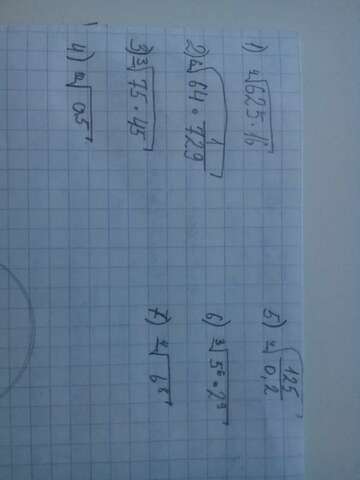 1) ⁴√625·16
2) ⁶√64·1/729
3) ³√75·45
4) √0.5
5) ⁴√125/0,2
6) ³√5⁶·2⁹
7) ⁴√6⁸